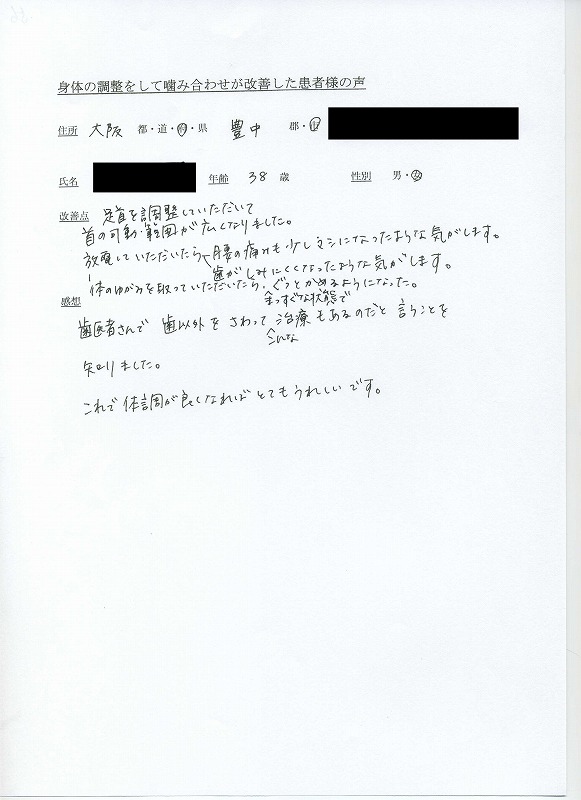 身体の調整をして噛み合わせが改善した患者様の声
住所 大阪 都・道・府・県 豊中 郡・市
氏名 年齢 38 歳 性別 男・女
改善点 足首を調整していただいて
首の可動範囲が広くなりました。
放電していただいたら、腰の痛みも少しマシになったような気がします。
歯がしみにくくなったような気がします。
体のゆがみを取っていただいたら、ぐっとかめるようになった。
まっすぐな状態で
感想
歯医者さんで 歯以外をさわって治療もあるのだと言うことを
こんな
知りました。
これで体調が良くなればとてもうれしいです。